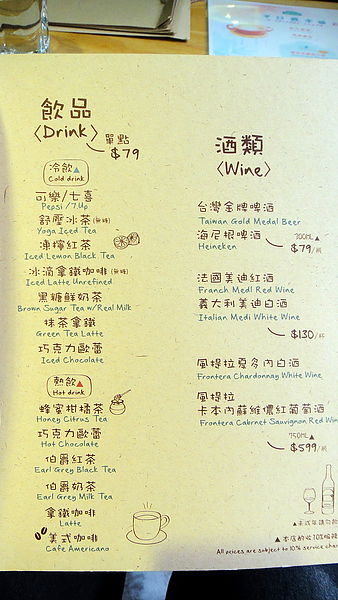 飲品
〈Drink〉
單點
$79
冷飲▲
Cold drink
可樂/七喜
Pepsi /7.Up
舒壓冰茶(無糖)
Yoga Iced Tea
凍檸紅茶
Iced Lemon Black Tea
冰滴拿鐵咖啡(無糖)
Iced Latte Unrefined
黑糖鮮奶茶
Brown Sugar Tea w/Real Milk
抹茶拿鐵
Green Tea Latte
巧克力歐蕾
Iced Chocolate
熱飲▲
Hot drink
蜂蜜柑橘茶
Honey Citrus Tea
巧克力歐蕾
Hot Chocolate
伯爵紅茶
Earl Grey Black Tea
伯爵奶茶
Earl Grey Milk Tea
拿鐵咖啡
Latte
美式咖啡
Cafe Americano
酒類
〈Wine〉
台灣金牌啤酒
Taiwan Gold Medal Beer
海尼根啤酒
Heineken
300ML▲
$79/瓶
法國美迪紅酒
Franch Medi Red Wine
義大利美迪白酒
Italian Medi White Wine
$130/杯
風提拉夏多內白酒
Frontera Chardonnay White Wine
風提拉
卡本內蘇維儂紅葡萄酒
Frontera Cabrnet Sauvignon Red Win
750ML▲
$599/瓶
▲本店酌收10%服務
All prices are subject to 10% service char